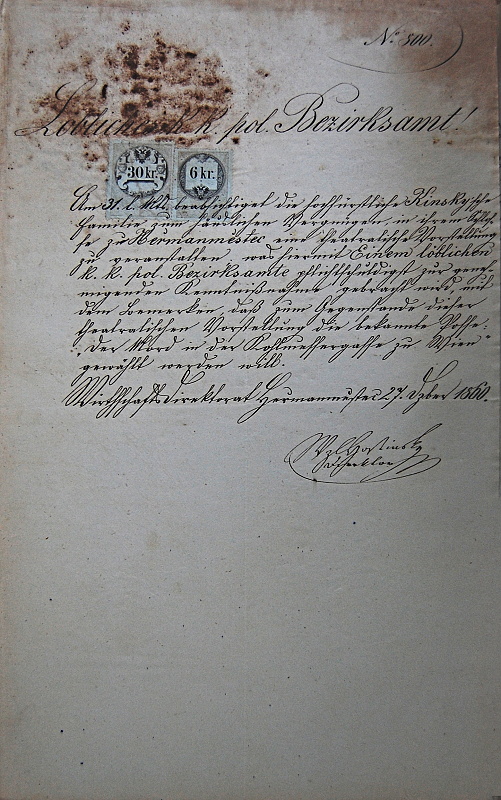 No 800.
Löbliches k. k. pol. Bezirksamt!
30 kr.
6 kr.
Am 31. l. Mts. beabsichtiget die hochfürstliche Kinsky'sche
Familie zum häuslichen Vergnügen, in ihrem Schlo-
ße zu Hermanmĕstec eine theatralische Vorstellung
zu veranstalten, was hiermit Einem löblichen
k. k. pol. Bezirksamte pflichtschuldigst zur geneh-
migenden Kenntnißnahme gebracht wird, mit
dem Bemerken, daß zum Gegenstande dieser
theatralischen Vorstellung die bekannte Posse:
"Der Mord in der Kohlmessergasse zu Wien"
gewählt werden will.
Wirthschafts Direktorat Hermanmĕstec 27. Dzber 1860.
Direktor